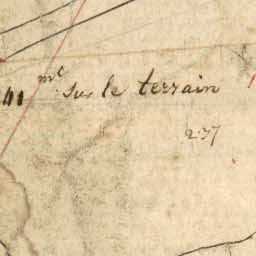 41 me sur le terrain
237